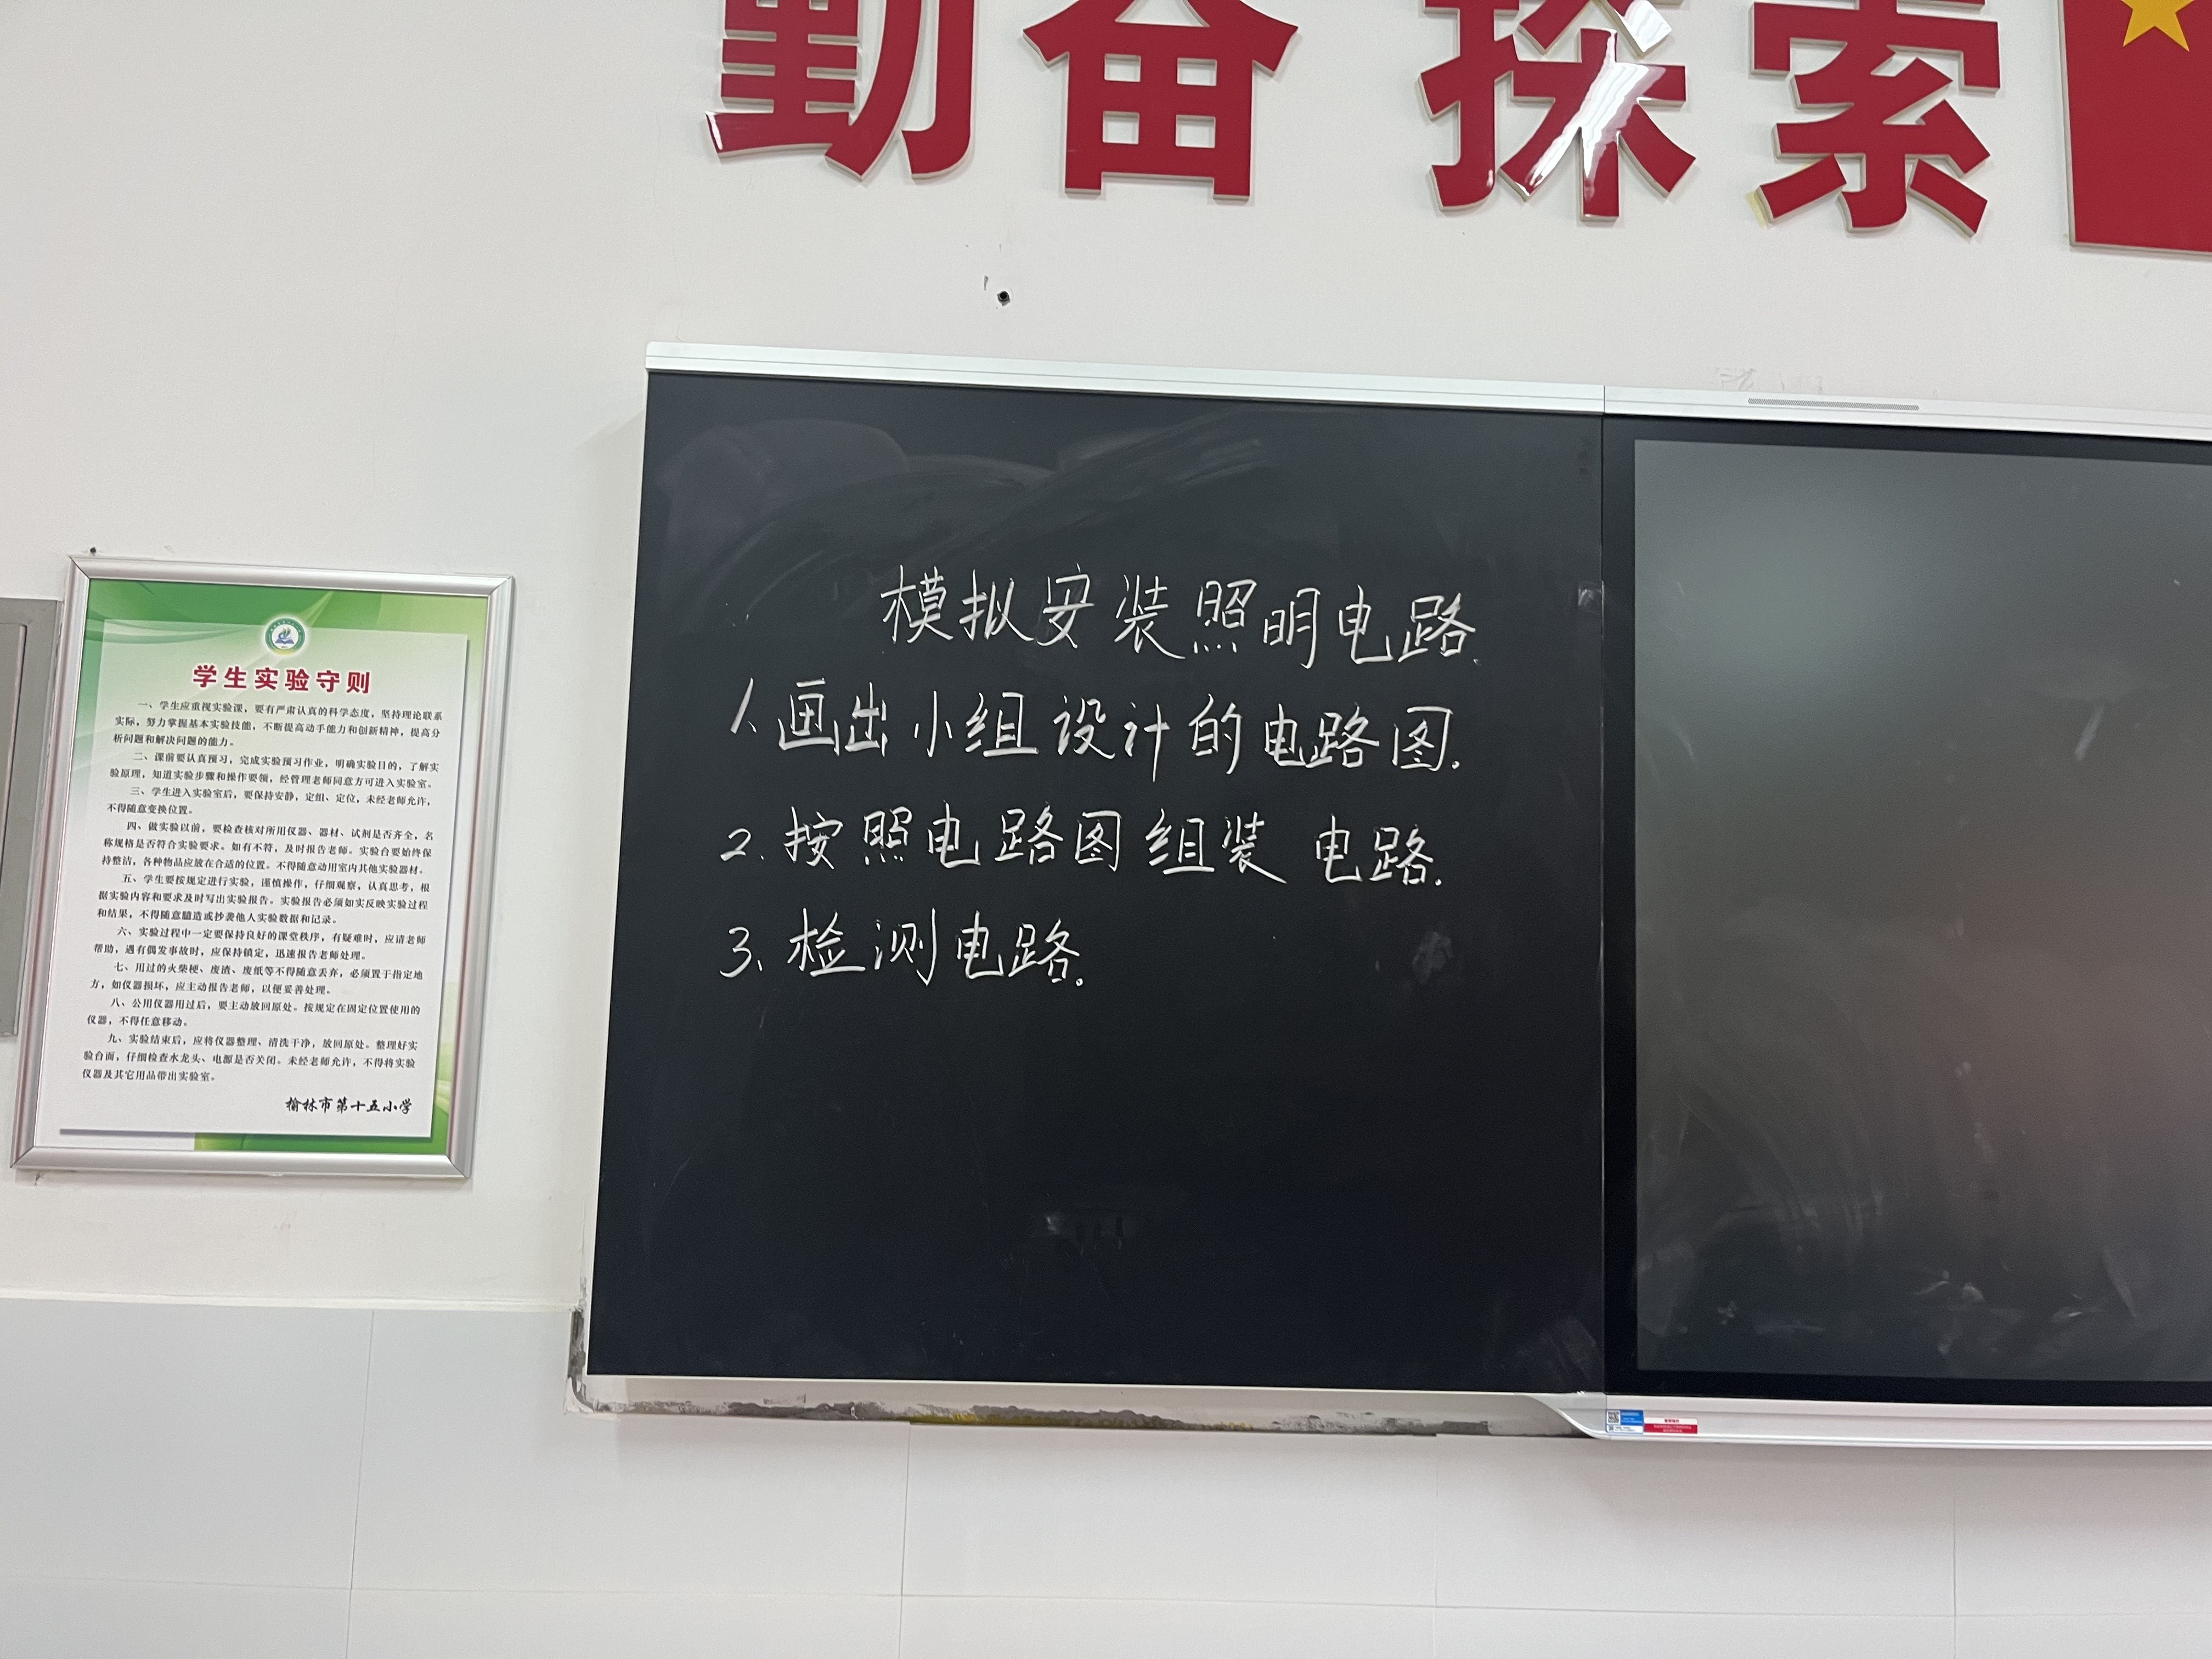 勤奋 探索
模拟安装照明电路.
1.画出小组设计的电路图.
2.按照电路图组装电路.
3、检测电路.
学生实验守则
一、学生应重视实验课，要有严肃认真的科学态度，坚持理论联系
实际，努力掌握基本实验技能，不断提高动手能力和创新精神，提高分
析问题和解决问题的能力。
二、课前要认真预习，完成实验预习作业，明确实验目的，了解实
验原理，知道实验步骤和操作要领，经管理老师同意方可进入实验室。
三、学生进入实验室后，要保持安静，定组、定位，未经老师允许，
不得随意变换位置。
四、做实验以前，要检查核对所用仪器、器材、试剂是否齐全，名
称规格是否符合实验要求。如有不符，及时报告老师。实验台要始终保
持整洁，各种物品应放在合适的位置。不得随意动用室内其他实验器材。
五、学生要按规定进行实验，谨慎操作，仔细观察，认真思考，根
据实验内容和要求及时写出实验报告。实验报告必须如实反映实验过程
和结果，不得随意臆造或抄袭他人实验数据和记录。
六、实验过程中一定要保持良好的课堂秩序，有疑难时，应请老师
帮助，遇有偶发事故时，应保持镇定，迅速报告老师处理。
七、用过的火柴梗、废渣、废纸等不得随意丢弃，必须置于指定地
方，如仪器损坏，应主动报告老师，以便妥善处理。
八、公用仪器用过后，要主动放回原处。按规定在固定位置使用的
仪器，不得任意移动。
九、实验结束后，应将仪器整理、清洗干净，放回原处。整理好实
验台面，仔细检查水龙头、电源是否关闭。未经老师允许，不得将实验
仪器及其它用品带出实验室。
榆林市第十五小学